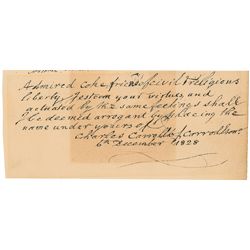 Admired coke friend of civil & religious
liberty I esteem your virtues, and
actuated by the same feelings shall
I be deemed arrogant by placing the
name under yours of
Charles Carroll of Carrollton
6th December 1828